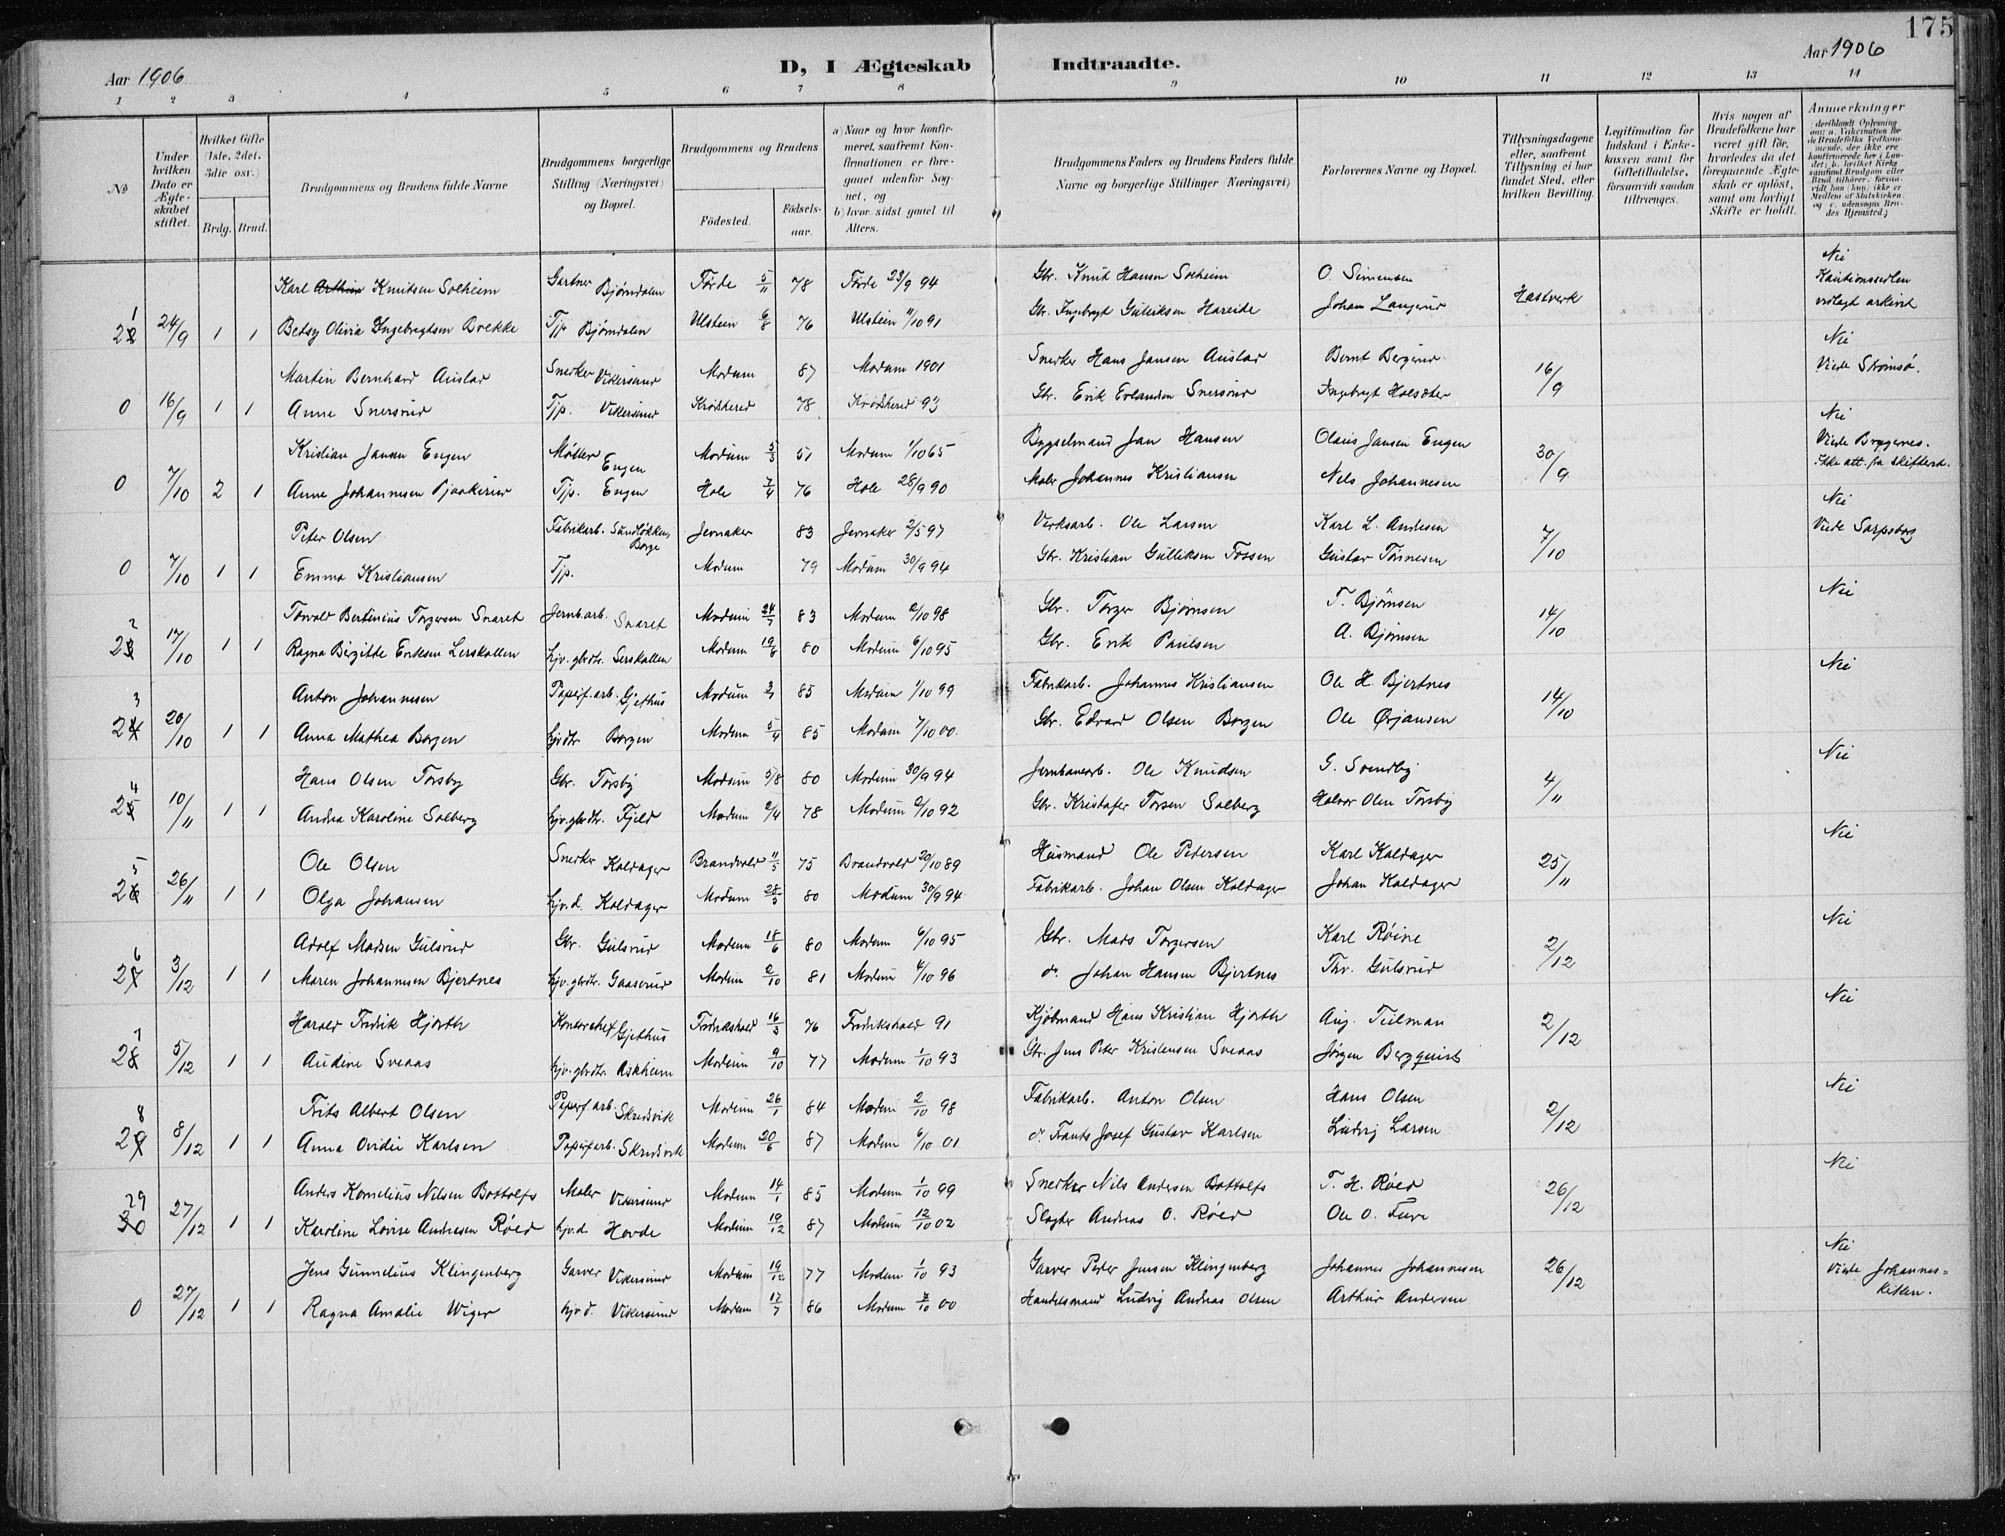 175
Aar 1906
D, I Ægteskab Indtraadte.
Aar 1906
1 2 3 4 5 6 7 8 9 10 11 12 13 14
No
Under hvilken Dato er Ægteskabet stiftet.
Hvilket Gifte (1ste, 2det, 3die osv.)
Brdg. Brud.
Brudgommens og Brudens fulde Navne
Brudgommens borgerlige Stilling (Næringsvei) og Bopæl.
Brudgommens og Brudens
Födested. Födsels-aar.
a) Naar og hvor konfirmeret, saafremt Konfirmationen er foregaaet udenfor Sognet, og
b) hvor sidst gaaet til Alters.
Brudgommens Faders og Brudens Faders fulde Navne og borgerlige Stillinger Næringsvei)
Forlovernes Navne og Bopæl.
Tillysningsdagene eller, saafremt Tillysning ei har fundet Sted, efter hvilken Bevilling.
Legitimation for Indskud i Enkekassen samt for Giftetilladelse, forsaavidt saadan tiltrænges.
Hvis nogen af Brudefolkene har været gift før, hvorledes da det foregaaende Ægteskab er oplöst, samt om lovligt Skifte er holdt.
Anmerkninger
Karl Arthur Knutsen Solheim Gartner Bjørndalen Førde 5/11 78 Førde 23/9 94 Gbr. Knut Hansen Solheim O Simensen Nei
Kautionsseddel vedlagt arkivet
21 24/9 1 1 Betsy Olivia Ingebrigtsen Brekke Tjp. Bjørndalen Ulstein 6/8 76 Ulstein 11/10 91 Gbr. Ingebrigt Gulliksen Hareide Johan Langerud Hastverk
Martin Bernhard Auslad Snedker Vikersund Modum 87 Modum 1901 Snedker Hans Jansen Auslad Bernt Bergerud Nei
Viede Strømsø.
0 16/9 1 1 Anne Snersrud Tjp. Vikersund Krødsherad 78 Krødsherad 93 Gbr. Erik Erlandsen Snersrud Ingebrigt Holsæter 16/9
Kristian Jansen Engen Møller Engen Modum 5/3 51 Modum 1/10 65 Bygselmand Jan Hansen Olaus Jansen Engen Nei
Viede Bragernes.
Ikke att. fra skifteret.
0 7/10 2 1 Anne Johannesen Tjp. Engen Hole 7/4 76 Hole 28/9 90 Maler Johannes Kristiansen Nils Johannesen 30/9
Peter Olsen Fabrikarb. Sundløkken, Borge Jevnaker 83 Jevnaker 2/5 97 Verksarb. Ole Larsen Karl L. Andersen Nei
Viede Sarpsborg
0 7/10 1 1 Emma Kristiansen Tjp. Modum 79 Modum 30/9 94 Gbr. Kristian Gulliksen Fossen Gustav Tønnesen 7/10
Torvald Bertinius Torgersen Snaret Jernb.arb. Snaret Modum 24/7 83 Modum 2/10 98 Gbr. Torger Bjørnsen T. Bjørnsen Nei
22 17/10 1 1 Ragna Birgitte Eriksen Lerskallen hjv. gbrdtr. Lerskallen Modum 19/6 80 Modum 6/10 95 Gbr. Erik Paulsen A. Bjørnsen 14/10
Anton Johannesen Papirf.arb. Gjethus Modum 3/7 85 Modum 1/10 99 Fabrikarb. Johannes Kristiansen Ole H. Bjertnes Nei
23 20/10 1 1 Anna Mathea Borgen hjv.dtr Borgen Modum 5/4 85 Modum 7/10 00. Gbr. Edvard Olsen Borgen Ole Ørjansen 14/10
Hans Olsen Torsby Gbr. Torsby Modum 5/8 80 Modum 30/9 94 Jernbanearb. Ole Knudsen G. Svendby Nei
24 10/11 1 1 Andrea Karoline Solberg hjv. gbrdtr. Fjeld Modum 2/4 78 Modum 2/10 92 Gbr. Kristofer Torsen Solberg Halvor Olsen Torsby 4/11
Ole Olsen Snedker Koldager Brandvold 11/5 75 Brandvold 20/10 89 Husmand Ole Pedersen Karl Koldager Nei
25 26/11 1 1 Olga Johansen hjv.d. Koldager Modum 28/5 80 Modum 30/9 94 Fabrikarb. Johan Olsen Koldager Johan Koldager 25/11
Adolf Madsen Gulsrud Gbr. Gulsrud Modum 18/6 80 Modum 6/10 95 Gbr. Mads Torgersen Karl Røine Nei
26 3/12 1 1 Maren Johannesen Bjertnes hjv. gbrdtr. Gaaserud Modum 2/10 81 Modum 4/10 96 do. Johan Hansen Bjertnes Thv. Gulsrud 2/12
Harald Fredrik Hjorth Kontorchef Gjethus Fredrikshald 16/3 76 Fredrikshald 91 Kjøbmand Hans Kristian Hjorth Aug. Tielman Nei
27 5/12 1 1 Audine Sveaas hjv. gbrdtr. Askheim Modum 9/10 77 Modum 1/10 93 Gbr. Jens Peter Kristensen Sveaas Jørgen Bergquist 2/12
Frits Albert Olsen Papirf.arb. Skredsvik Modum 26/1 84 Modum 2/10 98 Fabrikarb. Anton Olsen Hans Olsen Nei
28 8/12 1 1 Anna Ovidie Karlsen Papirf.arb. Skredsvik Modum 20/6 87 Modum 6/10 01 do. Frants Josef Gustav Karlsen Ludvig Larsen 2/12
Anders Kornelius Nilsen Bottolfs Maler Vikersund Modum 14/1 85 Modum 1/10 99 Snedker Nils Andersen Bottolfs T. H. Røed Nei
29 27/12 1 1 Karoline Lovise Andresen Røed hjv.d. Hovde Modum 19/12 87 Modum 12/10 02 Slagter Andreas O. Røed Ole O. Fure 26/12
Jens Gunnelius Klingenberg Garver Vikersund Modum 19/12 77 Modum 1/10 93 Garver Peder Jensen Klingenberg Johannes Johannesen Nei
Viede Johanneskirken.
0 27/12 1 1 Ragna Amalie Wiger hjv.d. Vikersund Modum 17/7 86 Modum 7/10 00 Handelsmand Ludvig Andreas Olsen Arthur Andersen 26/12